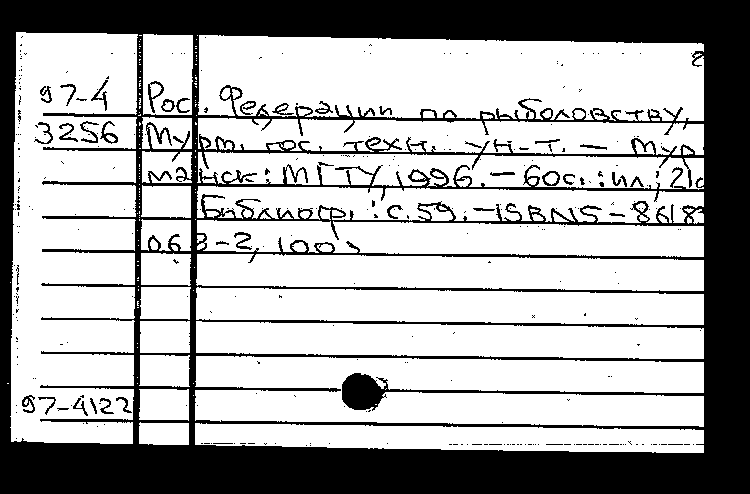 2
97-4 Рос. Федерации по рыболовству,
3256 Мурм. гос. техн. ун-т. – Мур
манск: МГТУ, 1996. – 60с.: ил.; 21с
Библиогр.: с.59. – ISBN5-8618
063-2, 100
97-4122